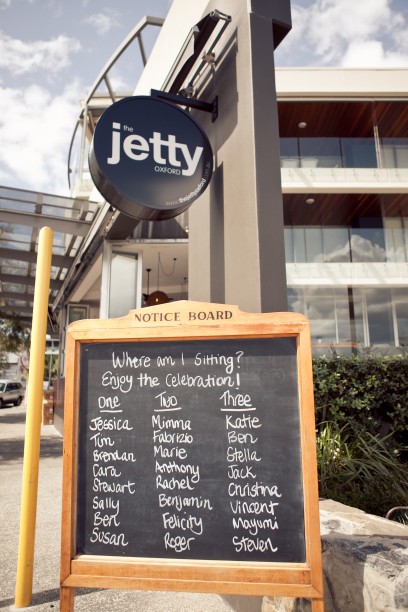 the
jetty
OXFORD
NOTICE BOARD
Where am I Sitting?
Enjoy the Celebration!
One Two Three
Jessica Mimma Katie
Tim Fabrizio Ben
Brendan Marie Stella
Cara Anthony Jack
Stewart Rachel Christina
Sally Benjamin Vincent
Ben Felicity Mayumi
Susan Roger Steven